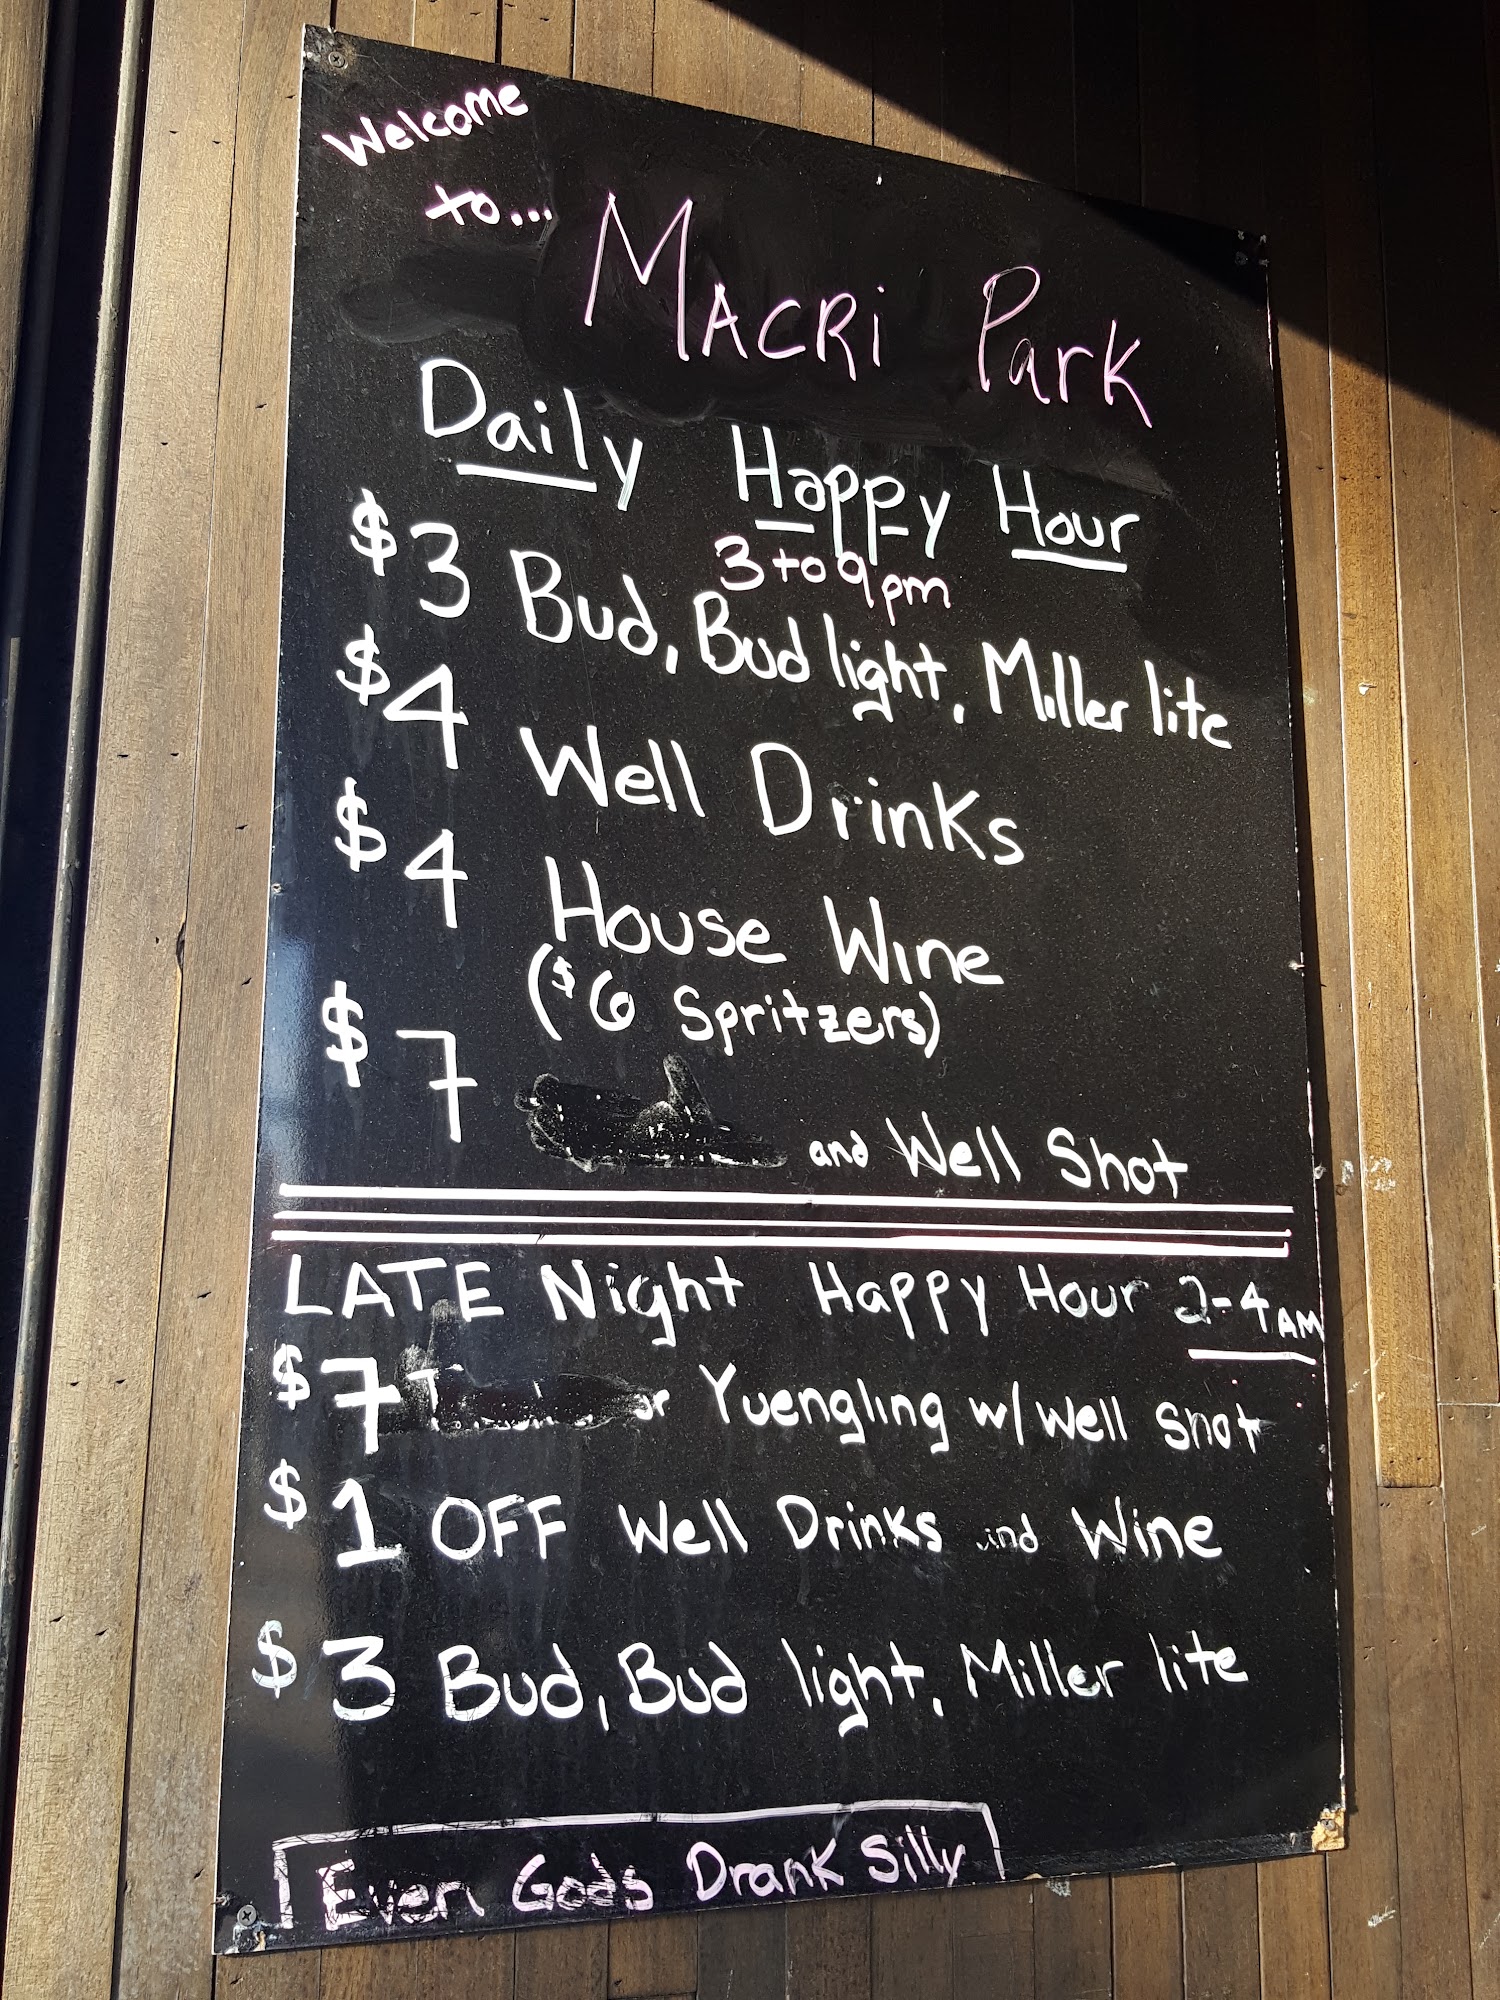 Welcome
to...
MACRi Park
Daily Happy Hour
3 to 9pm
$3 Bud, Bud light, Miller lite
$4 Well Drinks
$4 House Wine
($6 Spritzers)
$7 and Well Shot
LATE Night Happy Hour 2-4AM
$7 or Yuengling w/ well shot
$1 OFF Well Drinks and Wine
$3 Bud, Bud light, Miller lite
Even Gods Drank Silly